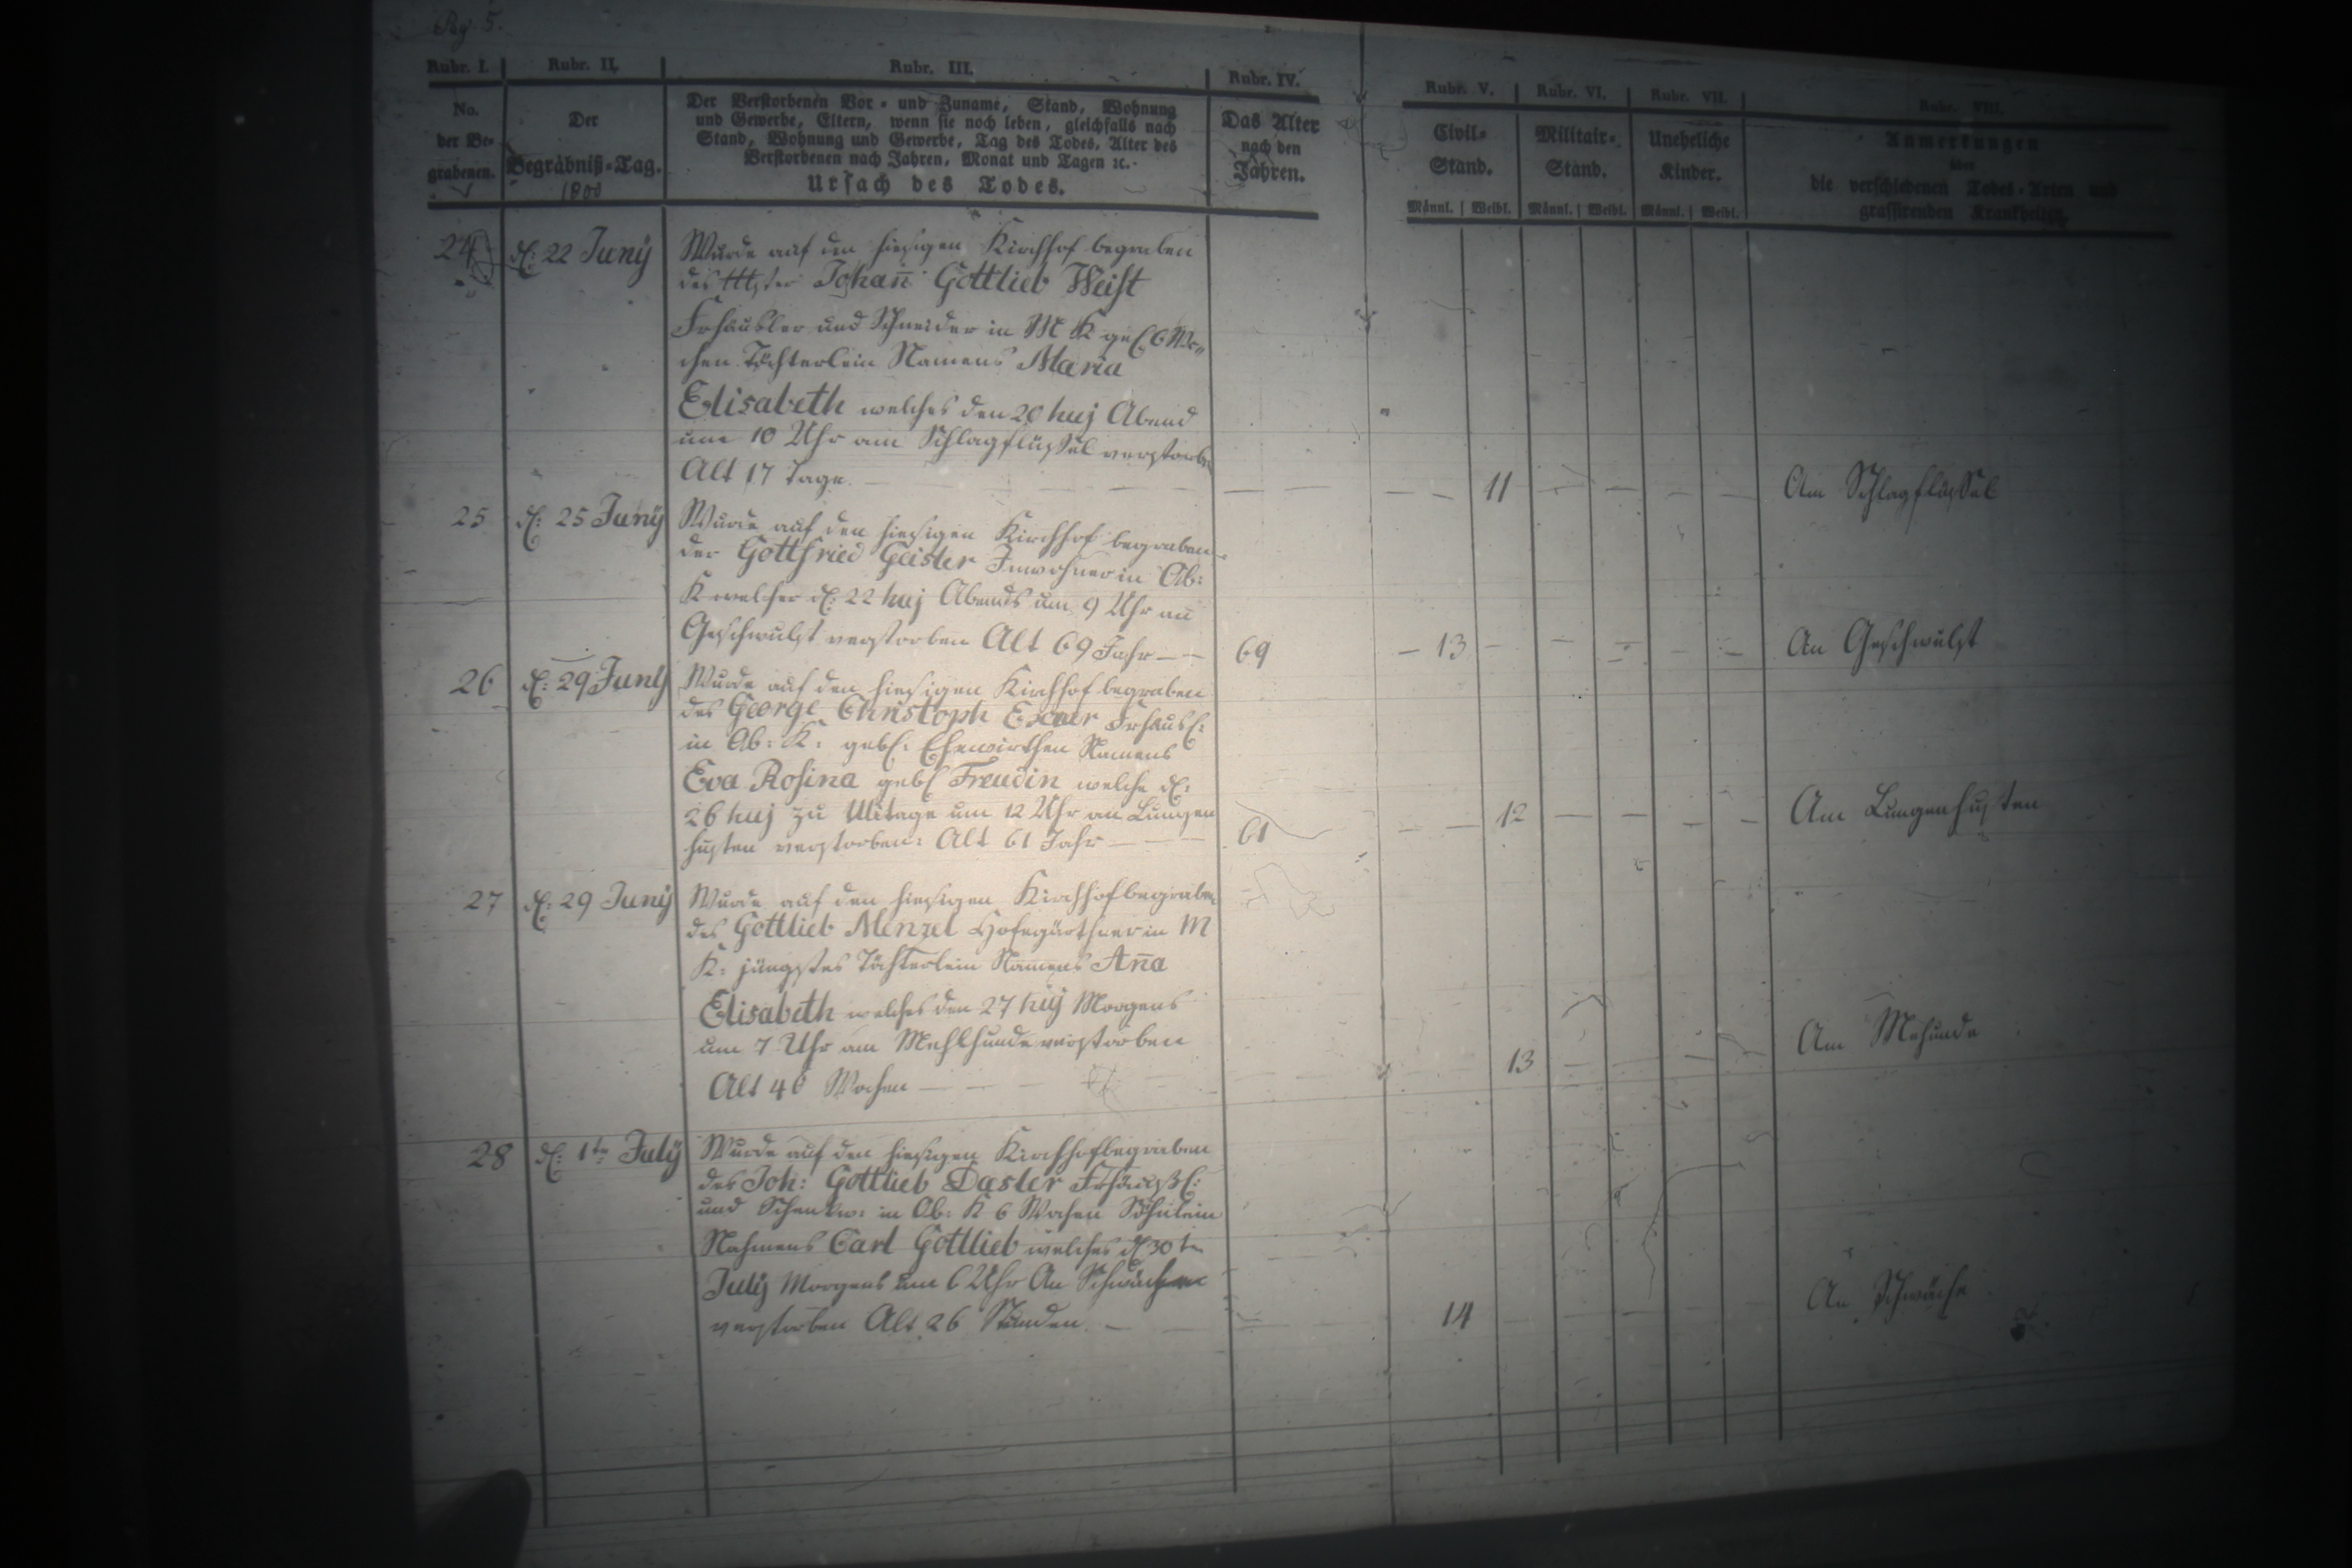 Pag. 5.
Rubr. I. Rubr. II. Rubr. III. Rubr. IV. Rubr. V. Rubr. VI. Rubr. VII. Rubr. VIII.
No.
der Be-
grabenen.
Der
Begräbniß-Tag.
1800
Der Verstorbenen Vor- und Zuname, Stand, Wohnung
und Gewerbe, Eltern, wenn sie noch leben, gleichfalls nach
Stand, Wohnung und Gewerbe, Tag des Todes, Alter des
Verstorbenen nach Jahren, Monat und Tagen ꝛc.
Ursach des Todes.
Das Alter
nach den
Jahren.
Civil-
Stand.
Militair-
Stand.
Uneheliche
Kinder.
Anmerkungen
über
die verschiedenen Todes-Arten und
grassirenden Krankheiten.
Männl. Weibl. Männl. Weibl. Männl. Weibl.
24 d: 22 Juny Wurde auf den hiesigen Kirchhof begraben
des Johan̄ Gottlieb Weist
Frhäusler und Schneider in M K
chen Töchterlein Namens Maria
Elisabeth welches den 20 huj Abend
um 10 Uhr am Schlagflüssel verstorben
Alt 17 Tage. 11 Am Schlagflüssel
25 d: 25 Juny Wurde auf den hiesigen Kirchhof begraben
der Gottfried Geisler Inwohner in Ob:
K welcher d: 22 huj Abends um 9 Uhr an
Geschwulst verstorben Alt 69 Jahr 69 13 An Geschwulst
26 d: 29 Juny Wurde auf den hiesigen Kirchhof begraben
des George Christoph Frhäusl:
in Ob: K: Ehewirthin Namens
Eva Rosina geb Freudin welche d:
26 huj zu Mitage um 12 Uhr an Lungen
husten verstorben: Alt 61 Jahr 61 12 Am Lungenhusten
27 d: 29 Juny Wurde auf den hiesigen Kirchhof begraben
des Gottlieb Menzel Hofegärthner in M
K: jüngstes Töchterlein Namens An̄a
Elisabeth welches den 27 huj Morgens
um 7 Uhr am Mehlhunde verstorben
Alt 46 Wochen 13 Am Mehunde
28 d: 1te July Wurde auf den hiesigen Kirchhof begraben
des Joh: Gottlieb Dasler Frhäußl:
und Schenkw: in Ob: K 6 Wochen Söhnlein
Nahmens Carl Gottlieb welches d 30te
July Morgens um 6 Uhr An
verstorben Alt 26 Stunden. 14 An Schwäche